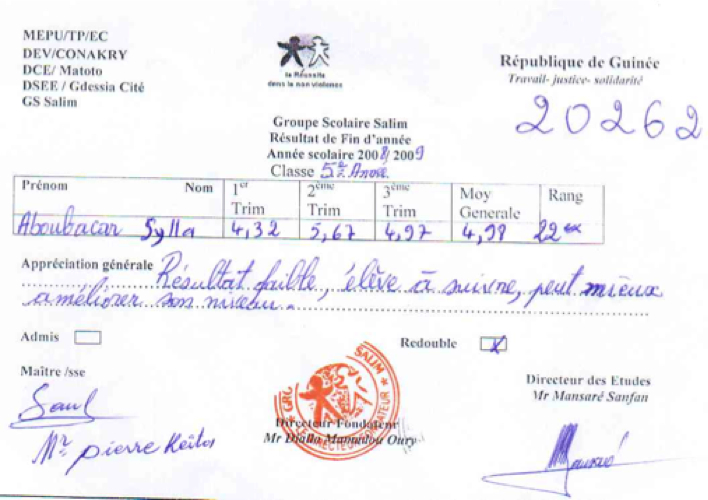 MEPU/TP/EC
DEV/CONAKRY
DCE/ Matoto
DSEE / Gdessia Cité
GS Salim
la Réussite
dans la non violence
République de Guinée
Travail- justice- solidarité
20262
Groupe Scolaire Salim
Résultat de Fin d'année
Année scolaire 2008/ 2009
Classe 5è Année
Prénom Nom 1er Trim 2ème Trim 3ème Trim Moy Generale Rang
Aboubacar Sylla 4,32 5,67 4,97 4,98 22ex
Appréciation générale Résultat faible, élève à suivre, peut mieux
améliorer son niveau.
Admis
Redouble X
Maître /sse
Directeur des Etudes
Mr Mansaré Sanfan
SALIM
Directeur Fondateur
Mr Diallo Mamadou Oury
Mr pierre Keita